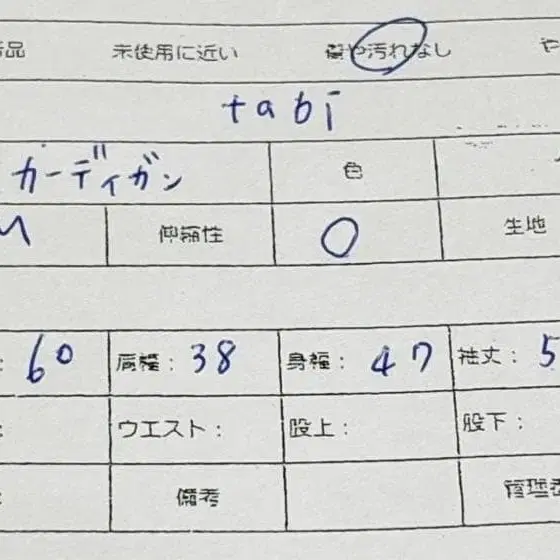 品 未使用に近い 傷や汚れなし や
tabi
カーディガン 色
M 伸縮性 ○ 生地
: 60 肩幅: 38 身幅: 47 袖丈: 5
: ウエスト: 股上: 股下:
: 備考 管理者